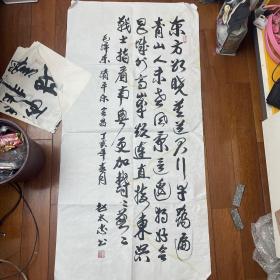 东方欲晓莫道君行早踏遍
青山人未老风景这边独好会
昌城外高峰颠连直接東溟
战士指看南粤更加鬱〻葱〻
毛泽东 清平乐 会昌 年春月